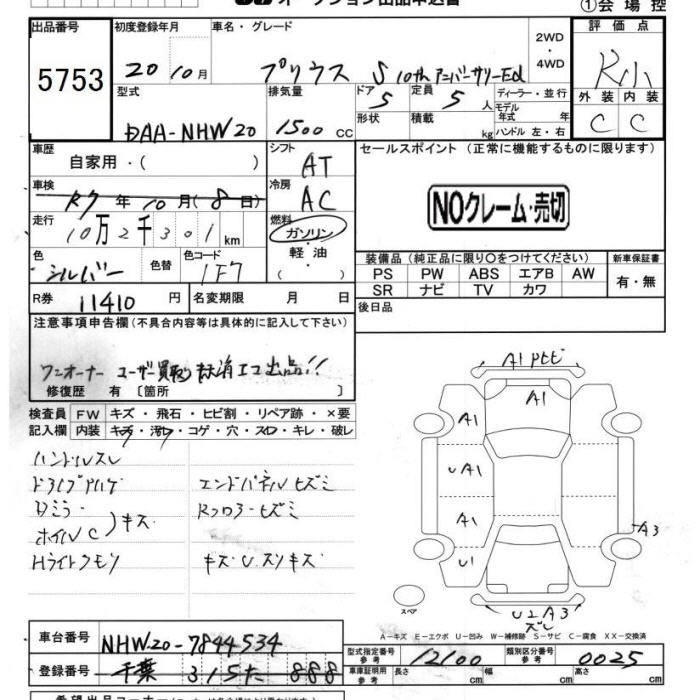 ①会場控
出品番号 初度登録年月 車名・グレード 評価点
5753 20 10月 プリウス S 10th アニバーサリーEd 2WD・4WD R小
型式 排気量 ドア 定員 ディーラー・並行 外装 内装
DAA-NHW20 1500 CC 5 5 人 モデル年式 年 C C
形状 積載 kg ハンドル 左・右
車歴 シフト セールスポイント (正常に機能するものに限ります)
自家用・( ) AT
車検 冷房
R7 年 10 月 ( 8 日) AC NOクレーム・売切
走行 燃料
10万2千301 km ガソリン・軽油・( )
色 色替 色コード 装備品 (純正品に限り○をつけてください) 新車保証書
シルバー 1F7 PS PW ABS エアB AW 有・無
SR ナビ TV カワ
R券 11410 円 名変期限 月 日 後日品
注意事項申告欄 (不具合内容等は具体的に記入して下さい)
ワンオーナー ユーザー買取 エコ出品!!
修復歴 有 〔箇所 〕
検査員 FW キズ・飛石・ヒビ割・リペア跡・×要
記入欄 内装 キズ・汚レ・コゲ・穴・スレ・キレ・破レ
ハンドルスレ
エンドパネルヒズミ
Rフロアーヒズミ
ホイルC キズ
Hライトクモリ
A1
A1
UA1
A1
A3
U1
スペア
U2A3
ズレ
A-キズ E-エクボ U-凹み W-補修跡 S-サビ C-腐食 XX-交換済
車台番号 NHW20-7844534 型式指定番号 参考 12100 類別区分番号 参考 0025
登録番号 千葉 315 た 888 車庫証明用 参考 長さ cm 幅 cm 高さ cm